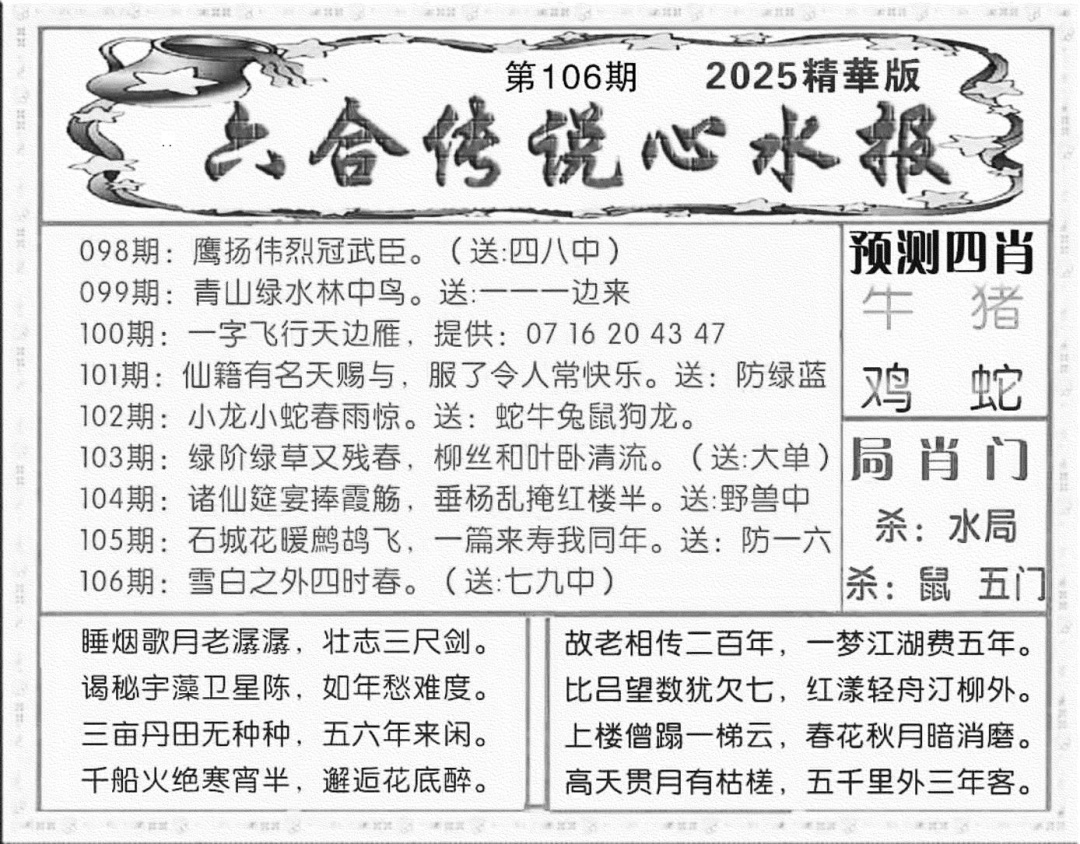 第106期 2025精華版
六合传说心水报
098期：鹰扬伟烈冠武臣。（送:四八中）
099期：青山绿水林中鸟。送:一一一边来
100期：一字飞行天边雁，提供：07 16 20 43 47
101期：仙籍有名天赐与，服了令人常快乐。送：防绿蓝
102期：小龙小蛇春雨惊。送：蛇牛兔鼠狗龙。
103期：绿阶绿草又残春，柳丝和叶卧清流。（送:大单）
104期：诸仙筵宴捧霞觞，垂杨乱掩红楼半。送:野兽中
105期：石城花暖鹧鸪飞，一篇来寿我同年。送：防一六
106期：雪白之外四时春。（送:七九中）
预测四肖
牛 猪
鸡 蛇
局肖门
杀：水局
杀：鼠 五门
睡烟歌月老潺潺，壮志三尺剑。
谒秘宇藻卫星陈，如年愁难度。
三亩丹田无种种，五六年来闲。
千船火绝寒宵半，邂逅花底醉。
故老相传二百年，一梦江湖费五年。
比吕望数犹欠七，红漾轻舟汀柳外。
上楼僧蹋一梯云，春花秋月暗消磨。
高天贯月有枯槎，五千里外三年客。